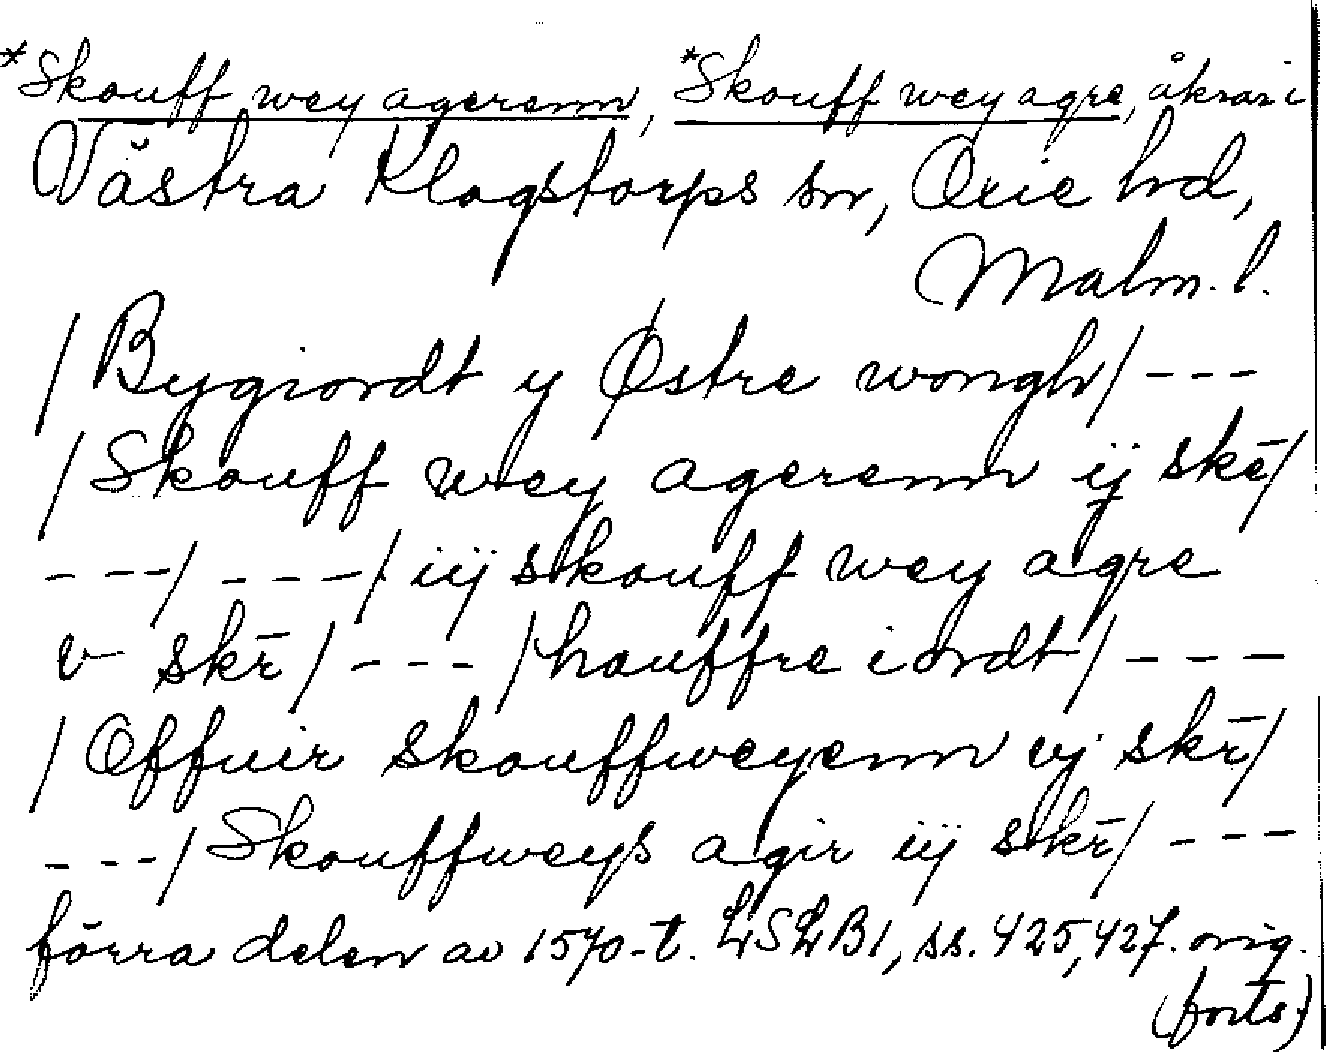 *Skouff wey agerenn, *Skouff wey agre, åkrar i
Västra Klagstorps sn, Oxie hd,
Malm. l.
/Bygiordt y Østre wongh/ ---
/Skouff wey agerenn ij skē/
---/ ---/ iij skouff wey agre
v skr̄/ --- /houffre iordt/ ---
/Offuir skouffweyenn vj skr̄/
---/ Skouffweys agir iij skr̄/ ---
förra delen av 1570-t. LSLB1, ss. 425, 427. orig.
(forts.)